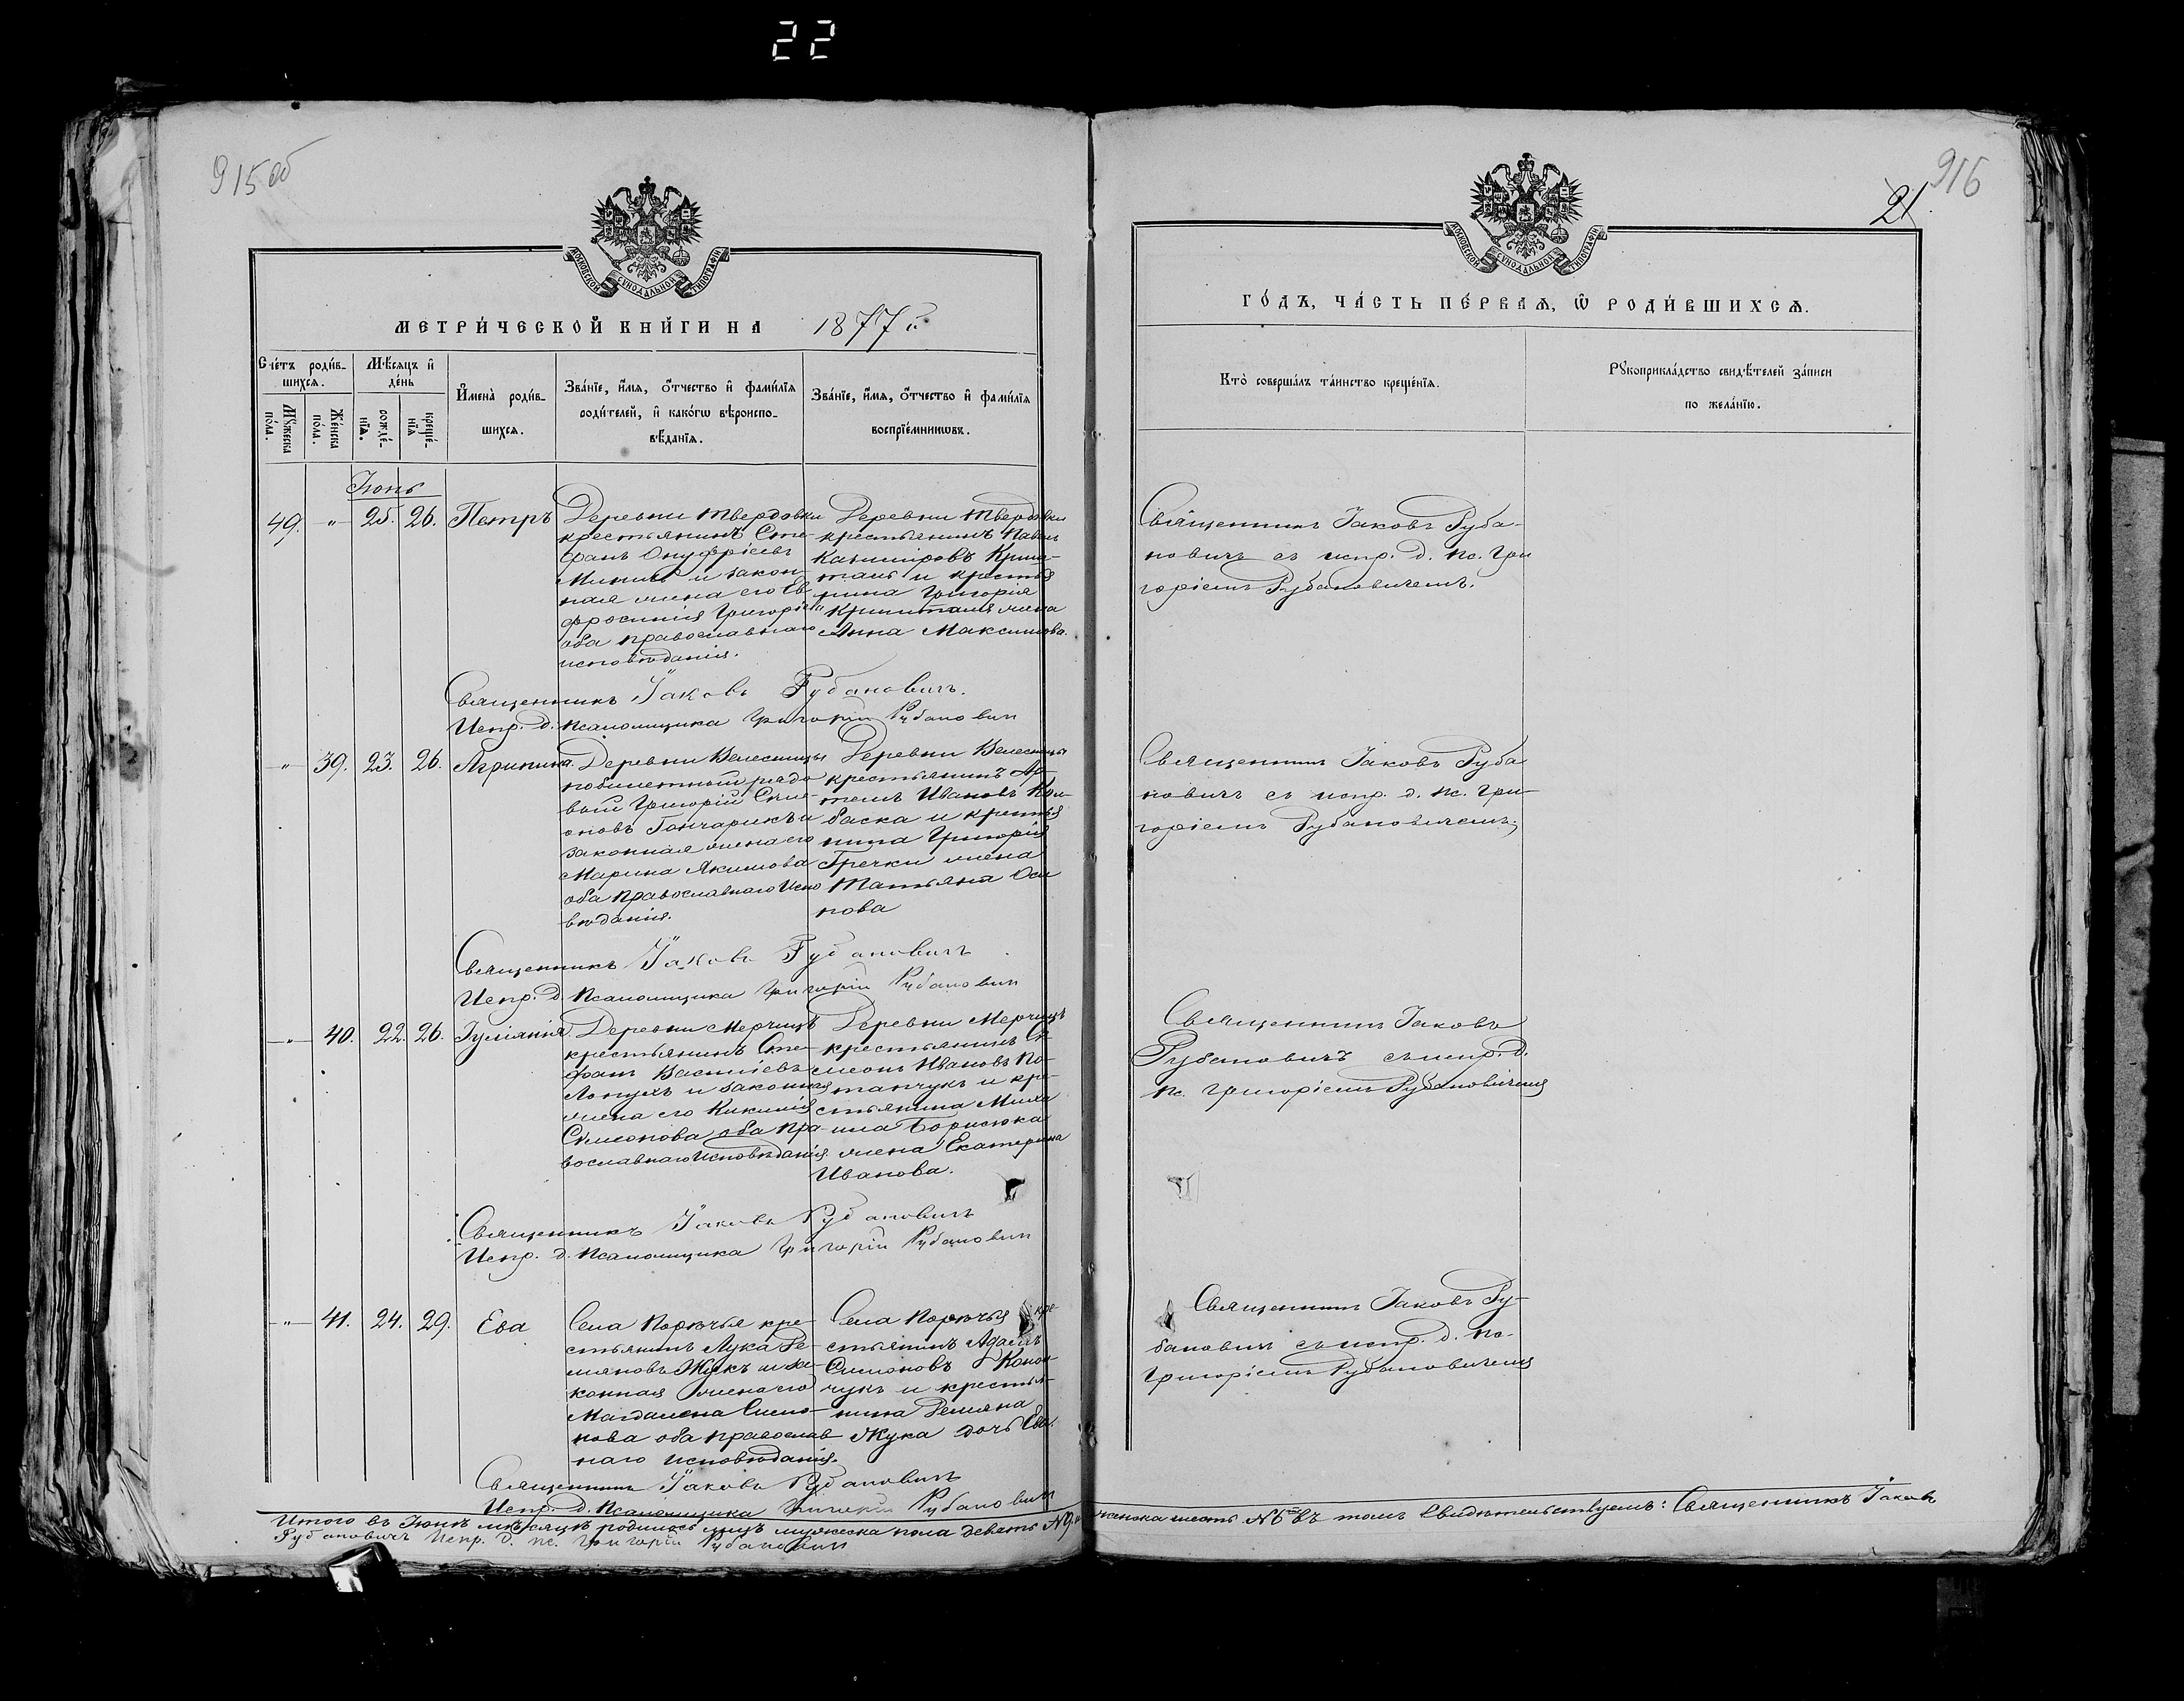 22
915 об
МОСКОВСКОЙ СѴНОДАЛЬНОЙ ТИПОГРАФІИ
МЕТРИ́ЧЕСКОЙ КНИ́ГИ НА 1877 й
Сче́тъ роди́в-
шихсѧ.
Мѣ́сѧцъ и҆
де́нь
И҆мена̀ роди́в-
шихсѧ.
Зва́нїе, и҆́мѧ, ѻ҆́тчество и҆ фами́лїѧ
роди́телей, и҆ како́гѡ вѣроиспо-
вѣ́данїѧ.
Зва́нїе, и҆́мѧ, ѻ҆́тчество и҆ фами́лїѧ
воспрїе́мникѡвъ.
Мꙋ́жеска
по́ла.
Же́нска
по́ла.
рожде́-
нїѧ.
креще́-
нїѧ
Іюнь
49. " 25. 26. Петръ
Деревни Твердовки
крестьянинъ Сте-
фанъ Онуфріевъ
и закон-
ная жена его Ев
фросинія Григоріе
оба православнаго
исповѣданія.
Деревни Твердовки
крестьянинъ Павелъ
Казиміровъ
и крестья
нина Григорія
жена
Анна Максимова.
Священникъ Іаковъ Рубановичъ.
Испр. д. Псаломщика Григорій Рубанович
" 39. 23. 26. Агрипина.
Деревни Велесницы
побилетный рядо
вый Григорій Симе-
оновъ Гончарикъ и
законная жена его
Марина Якимова
оба Православнаго Испо
вѣданія.
Деревни Велесницы
крестьянинъ Ар-
темъ Ивановъ Кол-
баска и крестья
нина Григорія
Гречки жена
Татьяна Оси
пова
Священникъ Іаковъ Рубановичъ
Испр. д. Псаломщика Григорій Рубанович
" 40. 22. 26. Іуліанія
Деревни Мерчицъ
крестьянинъ Сте-
фанъ Васильевъ
Лопухъ и законная
жена его Кикилія
Симеонова оба пра-
вославнаго исповѣданія.
Деревни Мерчицъ
крестьянинъ Си-
меонъ Ивановъ По-
тапчукъ и кре-
стьянина Миха
ила Борисюка
жена Екатерина
Иванова.
Священникъ Іаковъ Рубановичъ
Испр. д. Псаломщика Григорій Рубанович
" 41. 24. 29. Ева
Села Порѣчья кре-
стьянинъ Лука Де-
мяновъ Жукъ и за-
конная жена его
Магдалена Симо-
нова оба православ-
наго исповѣданія.
Села Порѣчья кре-
стьянинъ Адамъ
Симоновъ Конон-
чукъ и крестья-
нина Демяна
Жука дочь Ева.
Священникъ Іаковъ Рубановичъ
Испр. д. Псаломщика Григорій Рубанович
Итого въ Іюнѣ мѣсяцѣ родилось лицъ мужеска пола девять №9. женска шесть №6 въ томъ свидѣтельствуемъ: Священникъ Іаковъ
Рубановичъ Испр. д. пс. Григорій Рубанович
916
21.
МОСКОВСКОЙ СѴНОДАЛЬНОЙ ТИПОГРАФІИ
ГО́ДЪ, ЧА́СТЬ ПЕ́РВАѦ, Ѡ҆ РОДИ́ВШИХСѦ.
Кто̀ соверша́лъ та́инство креще́нїѧ.
Рꙋкоприкла́дство свидѣ́телей за́писи
по жела́нїю.
Священникъ Іаковъ Руба-
новичъ съ испр. д. пс. Гри
горіемъ Рубановичемъ.
Священникъ Іаковъ Руба
новичъ съ испр. д. пс. Гри-
горіемъ Рубановичемъ
Священникъ Іаковъ
Рубановичъ съ испр. д.
пс. Григоріемъ Рубановичемъ
Священникъ Іаковъ Ру-
бановичъ съ испр. д. пс.
Григоріемъ Рубановичемъ